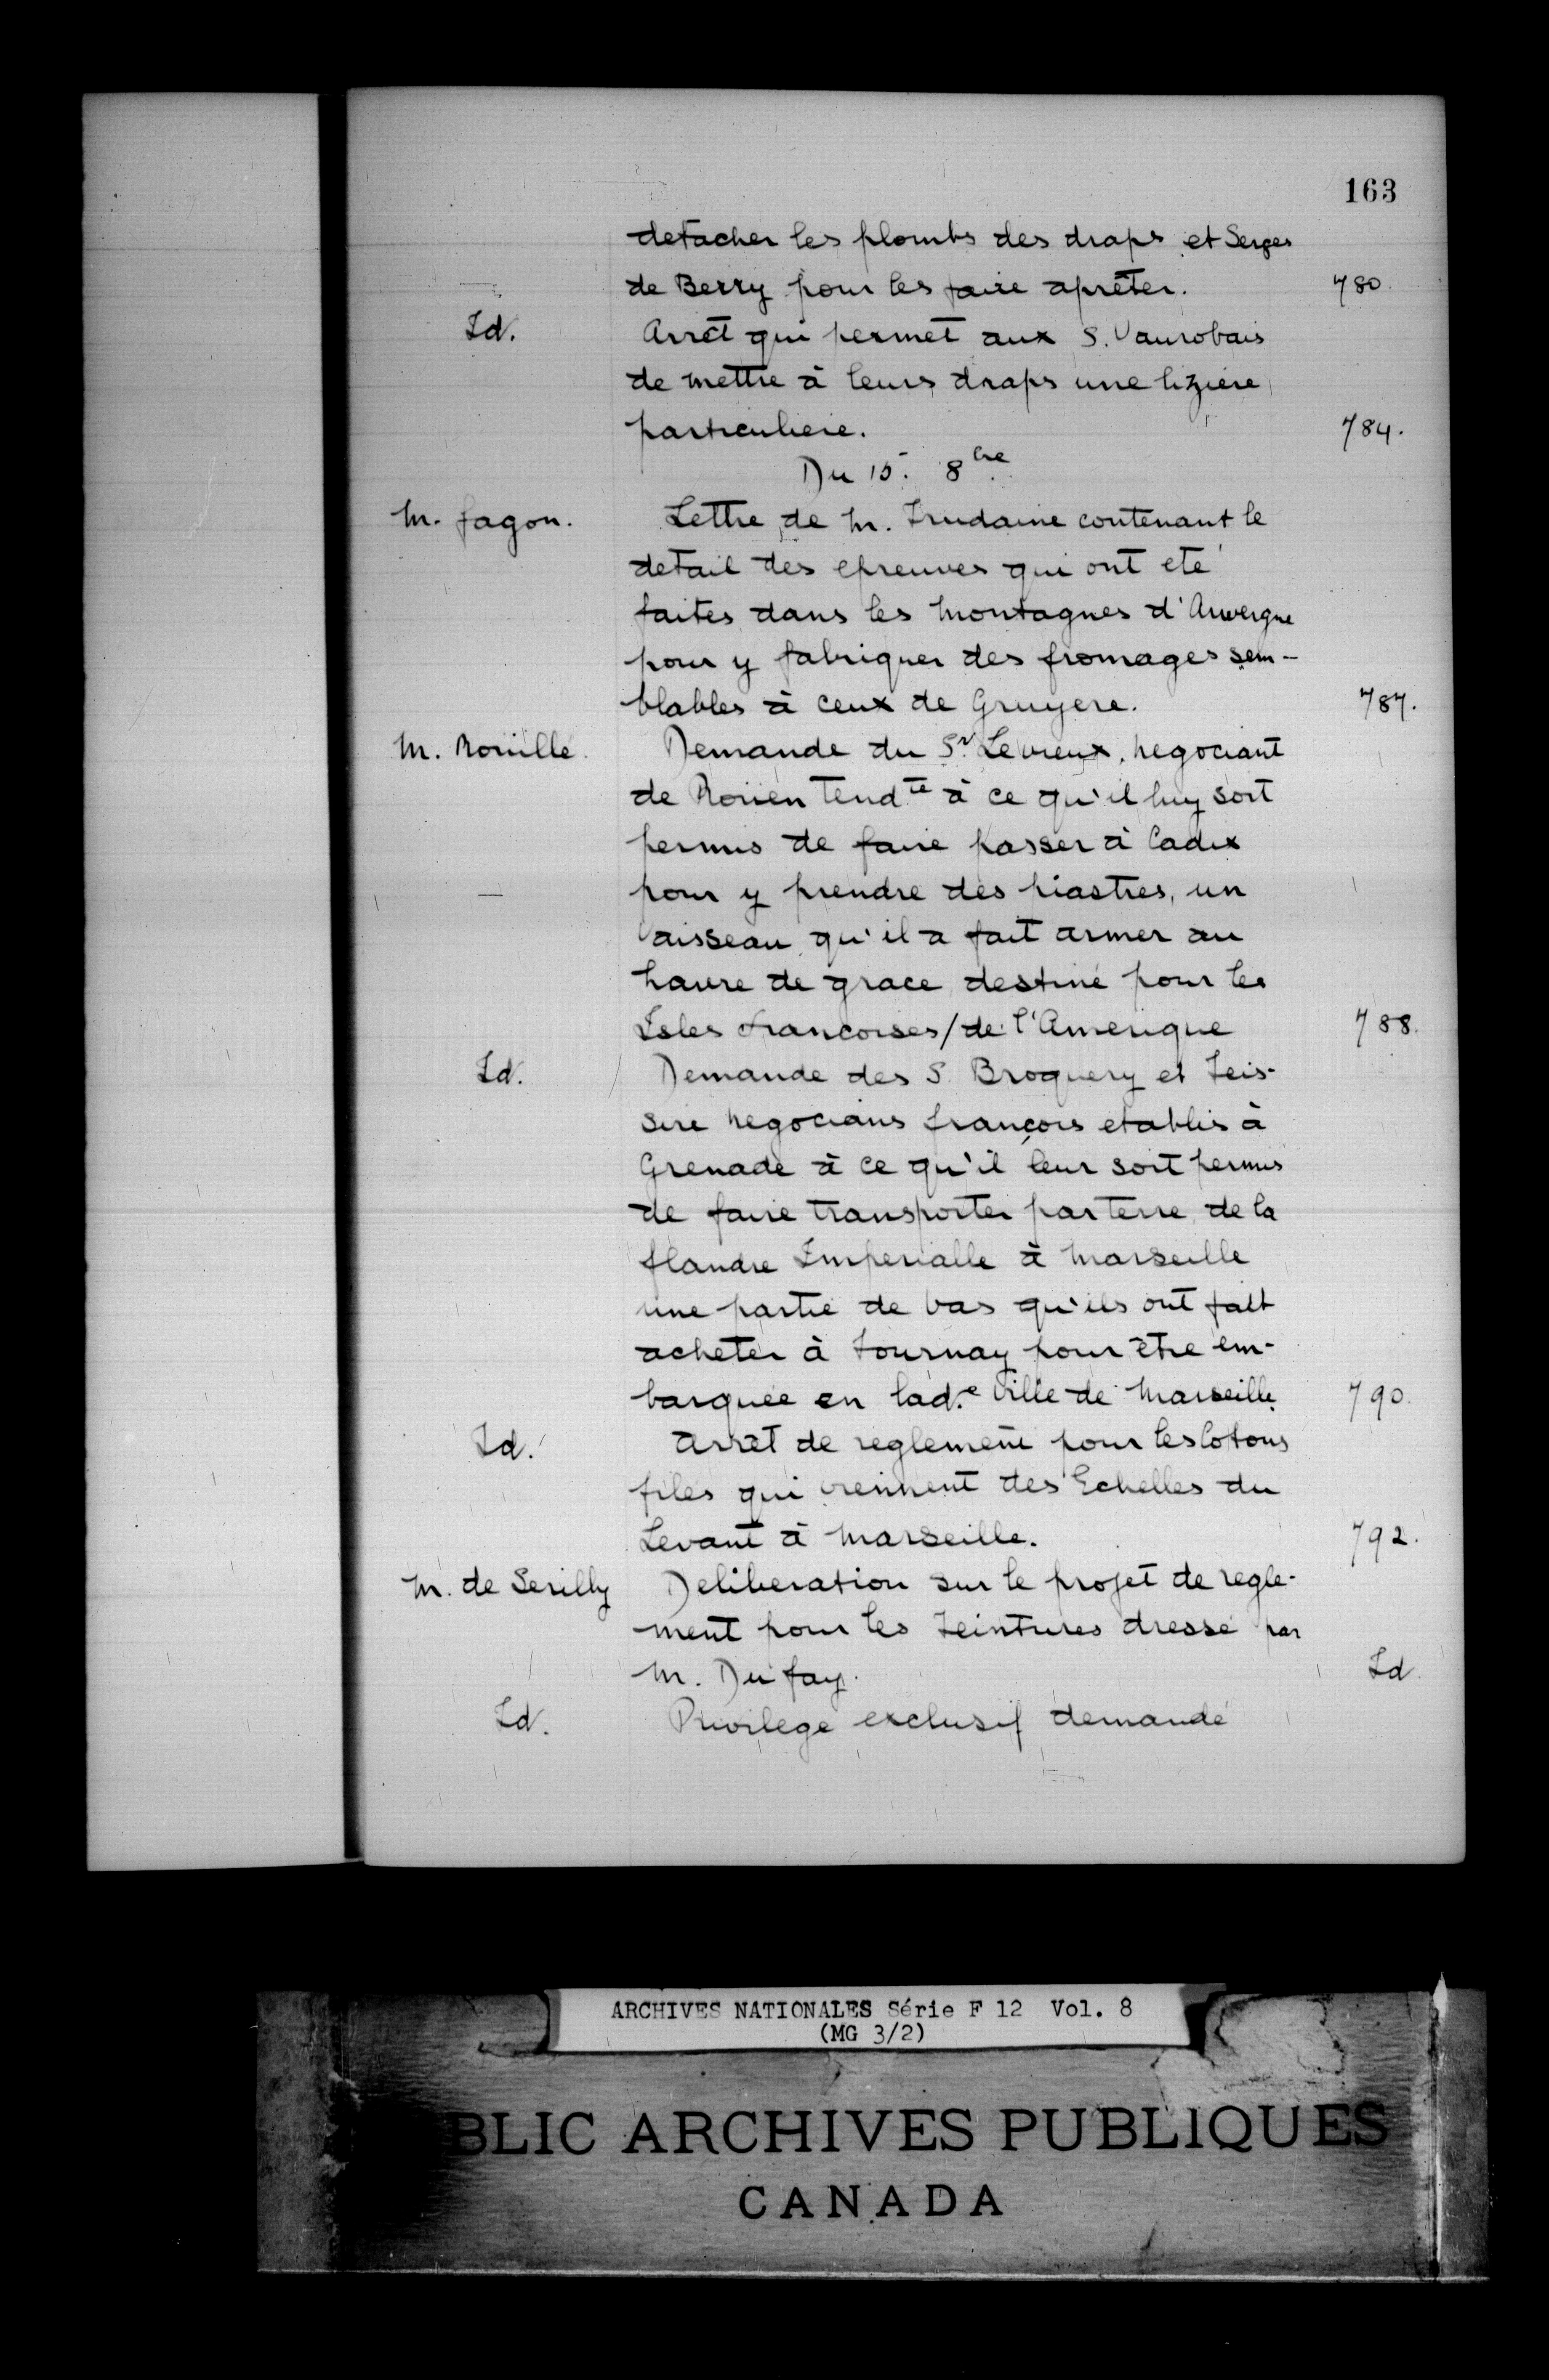 163
detacher les plombs des draps et Serges
de Berry pour les faire aprêter. 780.
Id. Arrêt qui permet aux S. Vanrobais
de mettre à leurs draps une liziere
particuliere. 784.
Du 15. 8bre
M. fagon. Lettre de M. Trudaine contenant le
detail des epreuves qui ont eté
faites dans les Montagnes d'Auvergne
pour y fabriquer des fromages sem-
blables à ceux de Gruyere. 787.
M. Rouillé. Demande du Sr. Levieux, negociant
de Roüen tendte à ce qu'il luy soit
permis de faire passer à Cadix
pour y prendre des piastres, un
Vaisseau qu'il a fait armer au
havre de grace destiné pour les
Isles francoises/de l'Amerique 788.
Id. Demande des S. Broquery et Teis-
sere negocians françois etablis à
Grenade à ce qu'il leur soit permis
de faire transporter par terre de la
flandre Imperialle à Marseille
une partie de bas qu'ils ont fait
acheter à Tournay pour être em-
barquée en lad.e Ville de Marseille. 790.
Id. Arrêt de reglement pour les Cotons
filés qui viennent des Echelles du
Levant à Marseille. 792.
M. de Serilly Deliberation sur le projet de regle-
ment pour les Teintures dressé par
M. Du fay. Id.
Id. Privilege exclusif demandé
ARCHIVES NATIONALES Série F 12 Vol. 8
(MG 3/2)
BLIC ARCHIVES PUBLIQUES
CANADA